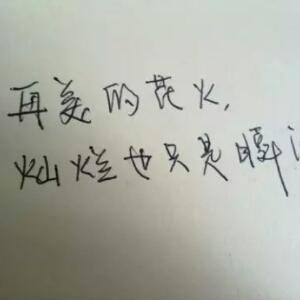 再美的花火,
灿烂也只是瞬